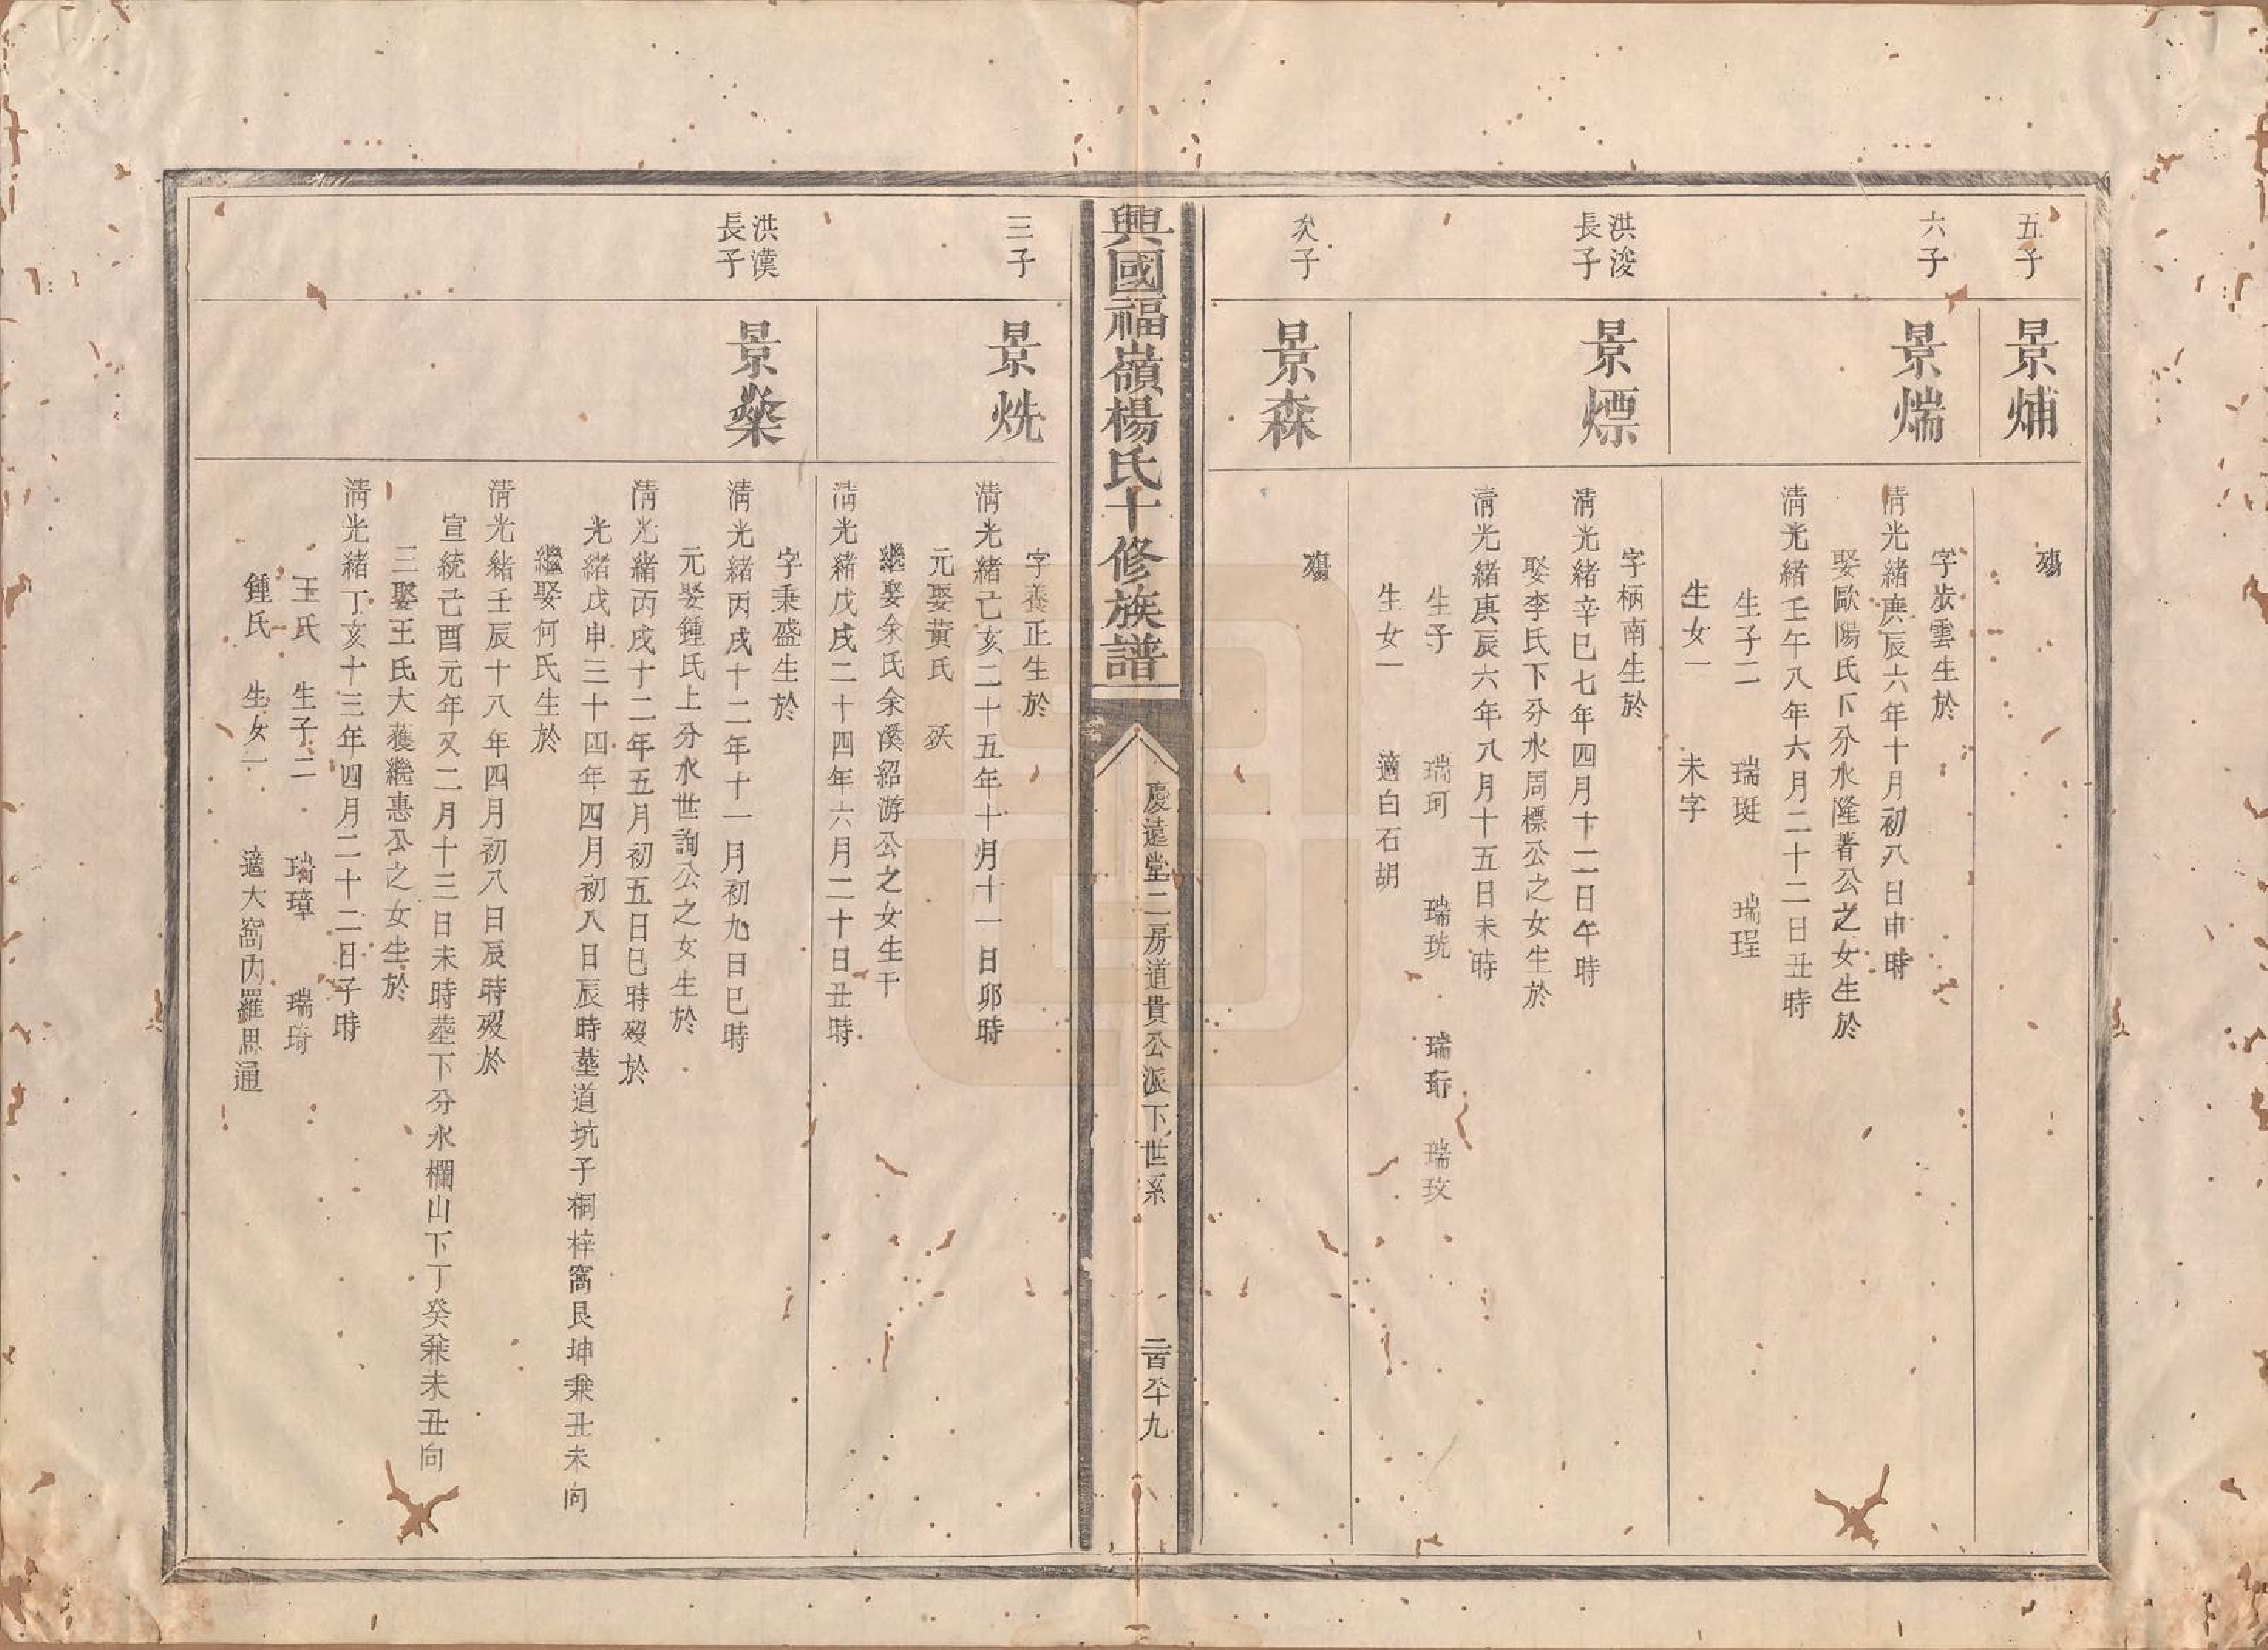 五子
景烳
殤
六子
景煓
字炭雲生於
清光緒庚辰六年十月初八日申時
娶歐陽氏下分水隆著公之女生於
清光緒壬午八年六月二十二日丑時
生子二 瑞珽 瑞珵
生女一 未字
洪浚
長子
景熛
字柄南生於
清光緒辛巳七年四月十二日午時
娶李氏下分水周標公之女生於
清光緒庚辰六年八月十五日未時
生子 瑞珂 瑞珖 瑞珩 瑞玫
生女一 適白石胡
次子
景森
殤
興國福嶺楊氏十修族譜
慶遠堂二房道貴公派下世系
二百八十九
三子
景烍
字養正生於
清光緒己亥二十五年十月十一日卯時
元娶黃氏 殀
繼娶余氏余溪紹游公之女生于
清光緒戊戌二十四年六月二十日丑時
洪漢
長子
景燊
字秉盛生於
清光緒丙戌十二年十一月初九日巳時
元娶鍾氏上分水世詢公之女生於
清光緒丙戌十二年五月初五日巳時歿於
光緒戊申三十四年四月初八日辰時塟道坑子桐梓窩艮坤兼丑未向
繼娶何氏生於
清光緒壬辰十八年四月初八日辰時歿於
宣統己酉元年又二月十三日未時塟下分水欄山下丁癸兼未丑向
三娶王氏大獲繼惠公之女生於
清光緒丁亥十三年四月二十二日子時
王氏 生子二 瑞璋 瑞琦
鍾氏 生女一 適大窩內羅思通